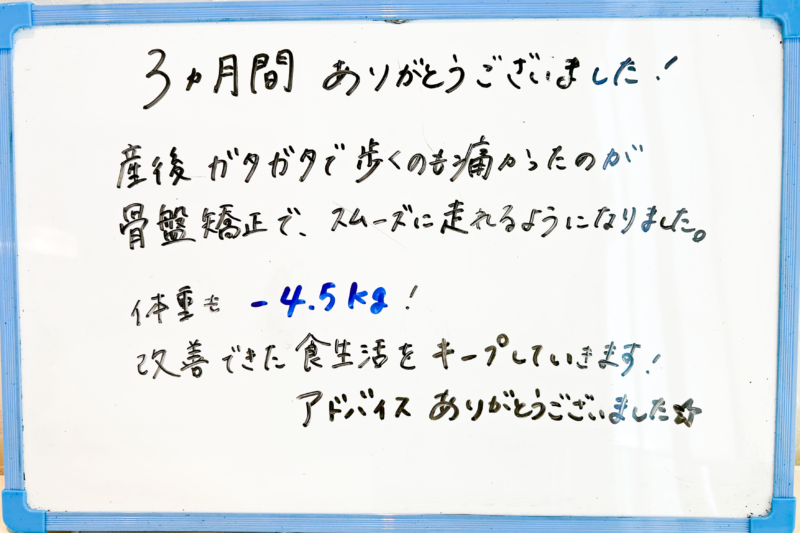 3ヵ月間 ありがとうございました!
産後 ガタガタで 歩くのも痛かったのが
骨盤矯正で、スムーズに走れるようになりました。
体重も -4.5kg!
改善できた食生活をキープしていきます!
アドバイス ありがとうございました☆